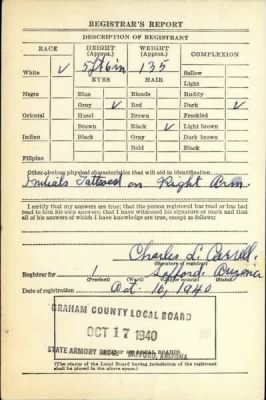 REGISTRAR'S REPORT
DESCRIPTION OF REGISTRANT
RACE HEIGHT (Approx.) WEIGHT (Approx.) COMPLEXION
White ✓ 5ft 6in 135 Sallow
EYES HAIR Light
Negro Blue Blonde Ruddy
Gray ✓ Red Dark ✓
Oriental Hazel Brown Freckled
Brown Black ✓ Light brown
Indian Black Gray Dark brown
Bald Black
Filipino
Other obvious physical characteristics that will aid in identification
Initials Tattooed on Right Arm.
I certify that my answers are true; that the person registered has read or has had
read to him his own answers; that I have witnessed his signature or mark and that
all of his answers of which I have knowledge are true, except as follows:
Charles L.
(Signature of registrar)
Registrar for 1 Safford Arizona
(Precinct) (Ward)
Date of registration Oct. 16, 1940
GRAHAM COUNTY LOCAL BOARD
OCT 17 1940
STATE ARMORY SAFFORD, ARIZONA
(STAMP OF LOCAL BOARD)
(The stamp of the Local Board having jurisdiction of the registrant
shall be placed in the above space)